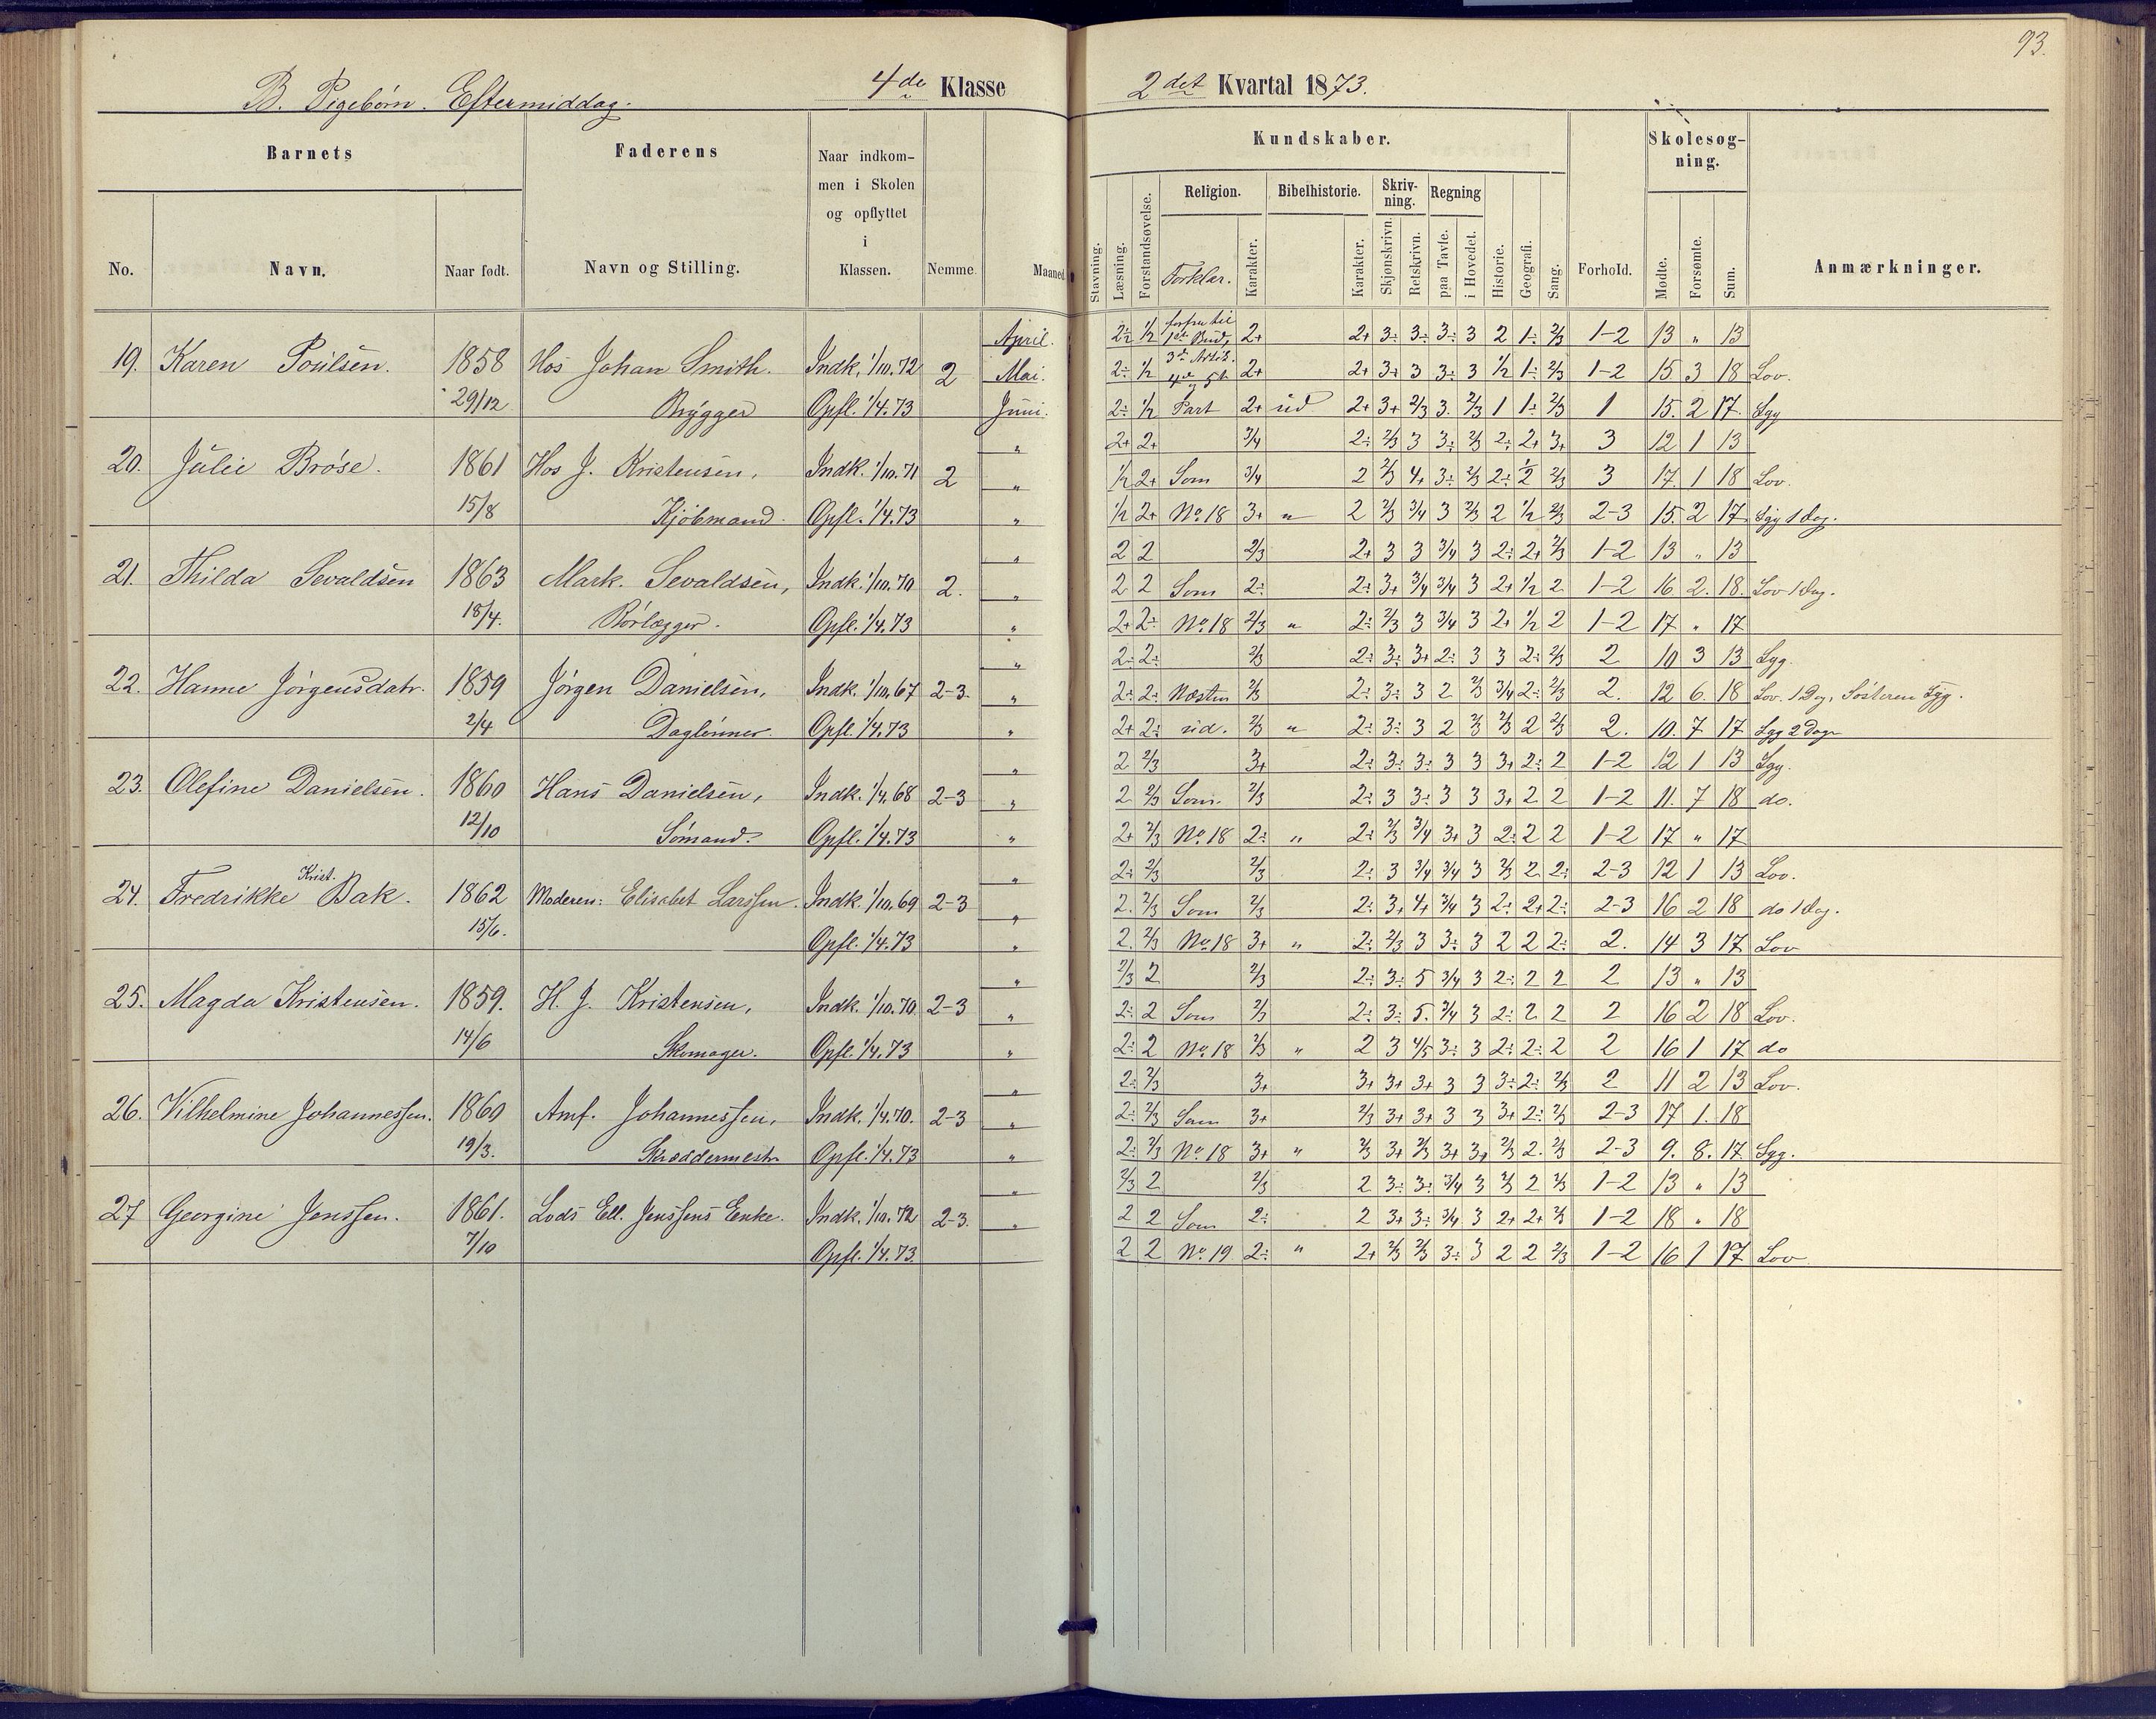 93.
B. Pigebørn. Eftermiddag. 4de Klasse 2det Kvartal 1873.
Barnets Faderens Naar indkommen i Skolen og opflyttet i Klassen. Nemme. Maaned Kundskaber. Forhold. Skolesøgning. Anmærkninger.
No. Navn. Naar født. Navn og Stilling. Stavning. Læsning. Forstandsøvelse. Religion. Forklar. Karakter. Bibelhistorie. Karakter. Skrivning. Skjønskrivn. Retskrivn. Regning paa Tavle. i Hovedet. Historie. Geografi. Sang. Mødte. Forsømte. Sum.
April. 2÷ 1/2 2+ 2+ 3÷ 3÷ 3÷ 3 2 1÷ 2/3 1-2 13 „ 13
19. Karen Poulsen. 1858 Hos Johan Smith. Indk. 1/10.72 2 Mai. 2÷ 1/2 3de Artik. 4de og 5te 2+ 2+ 3+ 3 3÷ 3 1/2 1÷ 2/3 1-2 15 3 18 Lov.
29/12 Brygger Opfl. 1/4.73 Juni. 2÷ 1/2 Part 2+ ud 2+ 3+ 2/3 3. 2/3 1 1÷ 2/3 1 15. 2 17. Syg
„ 2+ 2+ 3/4 2÷ 2/3 3 3÷ 2/3 2÷ 2+ 3+ 3 12 1 13
20. Julie Brøse. 1861 Hos J. Kristensen, Indk. 1/10.71 2 „ 1/2 2+ Som 3/4 2 2/3 4+ 3÷ 2/3 2÷ 1/2 2/3 3 17 1 18 Lov.
15/8 Kjøbmand. Opfl. 1/4.73 „ 1/2 2+ No. 18 3+ „ 2 2/3 3/4 3 2/3 2 1/2 2/3 2-3 15. 2 17. Syg 1 Dag.
„ 2 2 2/3 2+ 3 3 3/4 3 2÷ 2+ 2/3 1-2 13 „ 13
21. Thilda Sevaldsen 1863 Mark. Sevaldsen, Indk. 1/10.70 2. „ 2 2 Som 2÷ 2÷ 3+ 3/4 3/4 3 2+ 1/2 2 1-2 16 2. 18. Lov 1 Dag.
18/4. Rørlægger. Opfl. 1/4.73 „ 2+ 2÷ No. 18 2/3 „ 2÷ 2/3 3 3/4 3 2+ 1/2 2 1-2 17 „ 17
„ 2÷ 2÷ 2/3 2÷ 3÷ 3+ 2÷ 3 3 2÷ 2/3 2 10 3 13 Syg.
22. Hanne Jørgensdatr. 1859 Jørgen Danielsen, Indk. 1/10.67 2-3. „ 2÷ 2÷ Næsten 2/3 2÷ 3÷ 3 2 2/3 3/4 2÷ 2/3 2. 12 6. 18 Lov. 1 Dag, Søsteren Syg.
2/4 Daglønner. Opfl. 1/4.73 „ 2+ 2÷ ud. 2/3 „ 2÷ 3÷ 3 2 2/3 2/3 2 2/3 2. 10. 7 17 Syg 2 Dage
„ 2 2/3 3+ 2÷ 3÷ 3÷ 3 3 3+ 2÷ 2 1-2 12 1 13 Syg.
23. Olefine Danielsen. 1860 Hans Danielsen, Indk. 1/4.68 2-3 „ 2 2/3 Som 2/3 2÷ 3 3÷ 3 3 3+ 2 2 1-2 11. 7 18 do.
12/10 Sømand. Opfl. 1/4.73 „ 2+ 2/3 No. 18 2÷ „ 2÷ 2/3 3/4 3+ 3 2÷ 2 2 1-2 17 „ 17
„ 2÷ 2/3 2/3 2÷ 3 3/4 3/4 3 2/3 2 2÷ 2-3 12 1 13 Lov.
24. Fredrikke Krist. Bak. 1862 Moderen: Elisabet Larssen. Indk. 1/10.69 2-3 „ 2. 2/3 Som 2/3 2÷ 3+ 4+ 3/4 3 2÷ 2+ 2÷ 2-3 16 2 18 do 1 Dag.
15/6. Opfl. 1/4.73 „ 2. 2/3 No. 18 3+ „ 2÷ 2/3 3 3÷ 3 2 2 2÷ 2. 14 3 17 Lov
„ 2/3 2 2/3 2÷ 3÷ 5 3/4 3 2÷ 2 2 2 13 „ 13
25. Magda Kristensen. 1859. H. J. Kristensen, Indk. 1/10.70 2-3 „ 2÷ 2 Som 2/3 2÷ 3÷ 5. 3/4 3 2÷ 2 2 2 16 2 18 Lov.
14/6 Skomager. Opfl. 1/4.73 „ 2÷ 2 No. 18 2/3 „ 2 3 4/5 3÷ 3 2÷ 2÷ 2 2 16 1 17 do
„ 2÷ 2/3 3+ 3+ 3+ 3+ 3 3 3÷ 2÷ 2/3 2 11 2 13 Lov.
26. Vilhelmine Johannessen. 1860 Amf. Johannessen, Indk. 1/4.70. 2-3 „ 2÷ 2/3 Som 3+ 2/3 3+ 3+ 3 3 3+ 2÷ 2/3 2-3 17 1. 18
19/3. Skræddermestr Opfl. 1/4.73 „ 2÷ 2/3 No. 18 3+ „ 2/3 3+ 2/3 3+ 3+ 2/3 2. 2/3 2-3 9. 8. 17. Syg.
„ 2/3 2 2/3 2 3÷ 3÷ 3/4 3 2/3 2 2/3 1-2 13 „ 13
27 Georgine Jenssen. 1861. Lods Ell. Jenssens Enke. Indk. 1/10.72 2-3. „ 2 2 Som 2÷ 2 3+ 3÷ 3/4 3 2+ 2+ 2/3 1-2 18 „ 18
7/10 Opfl. 1/4.73. 2 2 No. 19 2÷ „ 2+ 2/3 2/3 3÷ 3 2 2 2/3 1-2 16 1 17 Lov